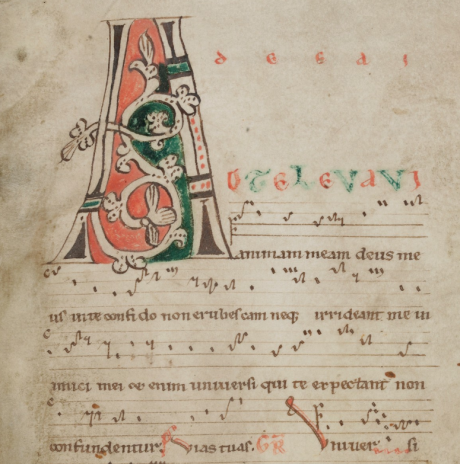 A a e e a i
D TELEVAVI
animam meam deus me
us inte confido non erubescam neq; irrideant me in
imici mei et enim uniuersi qui te expectant non
confundentur. uias tuas. GR Vniuer si